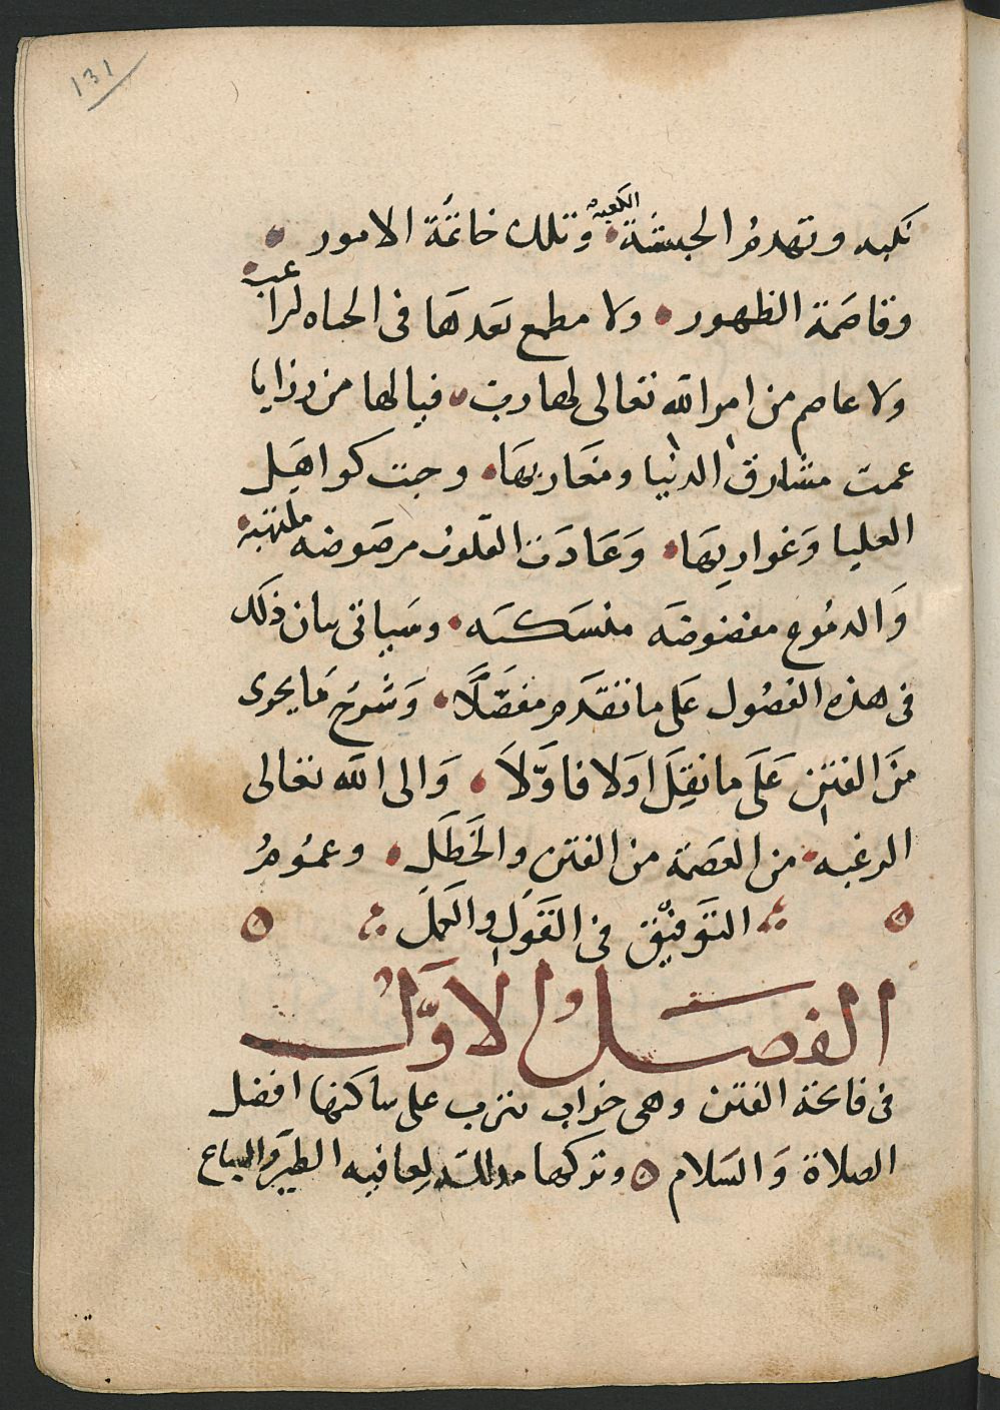 ١٣١
وتهدم الحبشة الكعبة وتلك خاتمة الامور
وقاصمة الظهور ولا مطمع بعدها فى الحياه لراغب
ولا عاصم من امر الله تعالى لهارب فيالها من رزايا
عمت مشارق الدنيا ومغاربها وجبت كواهل
العليا وغواربها وعادت القلوب مرضوضه ملتهبة
والدموع مفضوضه منسكبه وسياتى بيان ذلك
فى هذه الفصول على ما تقدم مفصلا وشرح ما يحوى
من الفتن على ما نقل اولا فاولا والى الله تعالى
الرغبه من العصمة من الفتن والخطل وعموم
التوفيق فى القول والعمل
الفصل الاول
فى فاتحة الفتن وهى خراب يثرب على ساكنها افضل
الصلاة والسلام وتركها لعافيه الطير والسباع